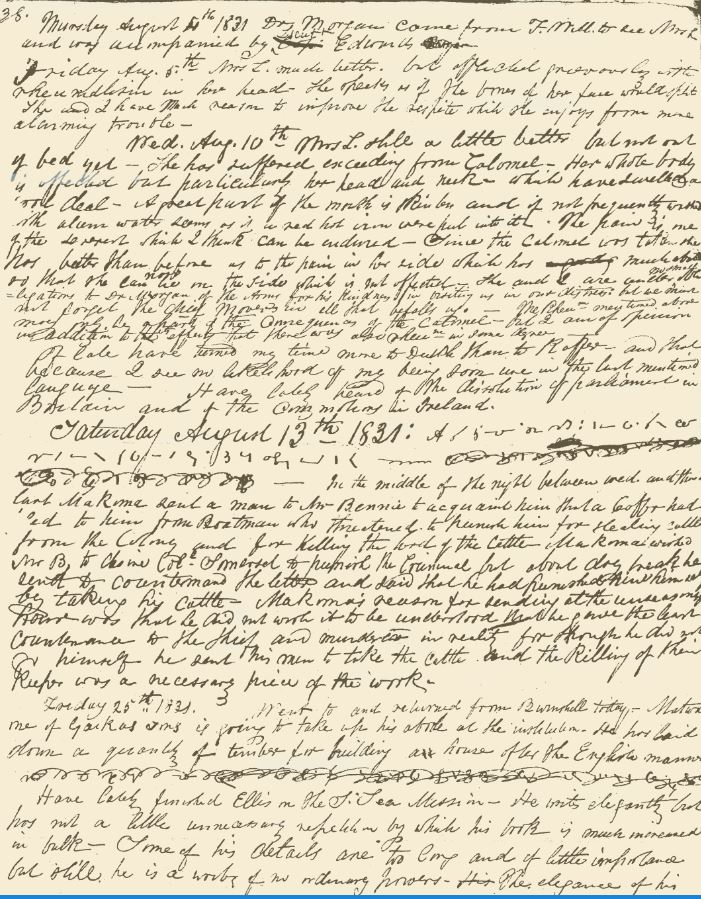 38. Thursday August 4th 1831 Drs Morgan came from F. Will. to see Mrs L
and was accompanied by Edwards
Friday Aug. 5th Mrs L. much better. but afflicted grievously with
rheumatism in her head - She speaks as if the bones of her face would split
She and I have much reason to improve the respite which she enjoys from more
alarming trouble -
Wed. Aug. 10th Mrs L. still a little better but not out
of bed yet - She has suffered exceeding from Calomel - Her whole body
is affected but particularly her head and neck - which have swelled a
deal - A great part of the mouth is and if not frequently
with alum water seems as if a red hot iron were put into it. The pain is one
of the severest which I think can be endured - Since the Calomel was taken she
has better than before as to the pain in her side which has much
so that she can now lie on the side which is not affected - She and I are under
-ligations to Dr Morgan of the Arms for his kindness in visiting us in our distress but we must
not forget the Chief Mover in all that befalls us. - The mentioned above
may only be a part of the Consequences of the Calomel - but I am of opinion
in addition to the effect that there was also in some degree -
Of late have turned my time more to Dutch than to Kaffer - and that
because I see no likelihood of my being soon use in the last mentioned
language - Have lately heard of the dissolution of parliament in
Britain and of the Commotions in Ireland.
Saturday August 13th 1831:
- In the middle of the night between wed. and thurs
last Makoma sent a man to Mr Bennie to acquaint him that a Caffer had
to him from Boatman who threatened to punish him for stealing cattle
from the Colony and for killing the herd of the Cattle - Makoma wished
Mr B. to Col. Somerset to punish the Criminal but about day break he
sent to countermand the letter and said that he had punished him himself
by taking his cattle - Makoma's reason for sending at the unseasonable
hour was that he did not wish it to be understood that he gave the least
countenance to the thief and murderer in reality for though he did not
go himself he sent his men to take the cattle and the killing of their
keeper was a necessary piece of the work -
Friday 25th 1831. Went to and returned from Burnshill today - Matwa
one of Gaikas sons is going to take up his abode at the institution. He has laid
down a quantity of timber for building a house after the English manner
Have lately finished Ellis on the S. Sea Mission - He writes elegantly but
has not a little unnecessary repetition by which his book is much increased
in bulk - Some of his details are too long and of little importance
but still he is a writer of no ordinary powers - The elegance of his